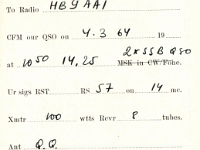 To Radio HB9AAI
CFM our QSO on 4.3 64 19
2xSSB QSO
at 1050 14,25 MSK in CW/Fone.
Ur sigs RST RS 57 on 14 mc.
Xmtr 100 wtts Revr 8 tubes.
Ant Q.Q.